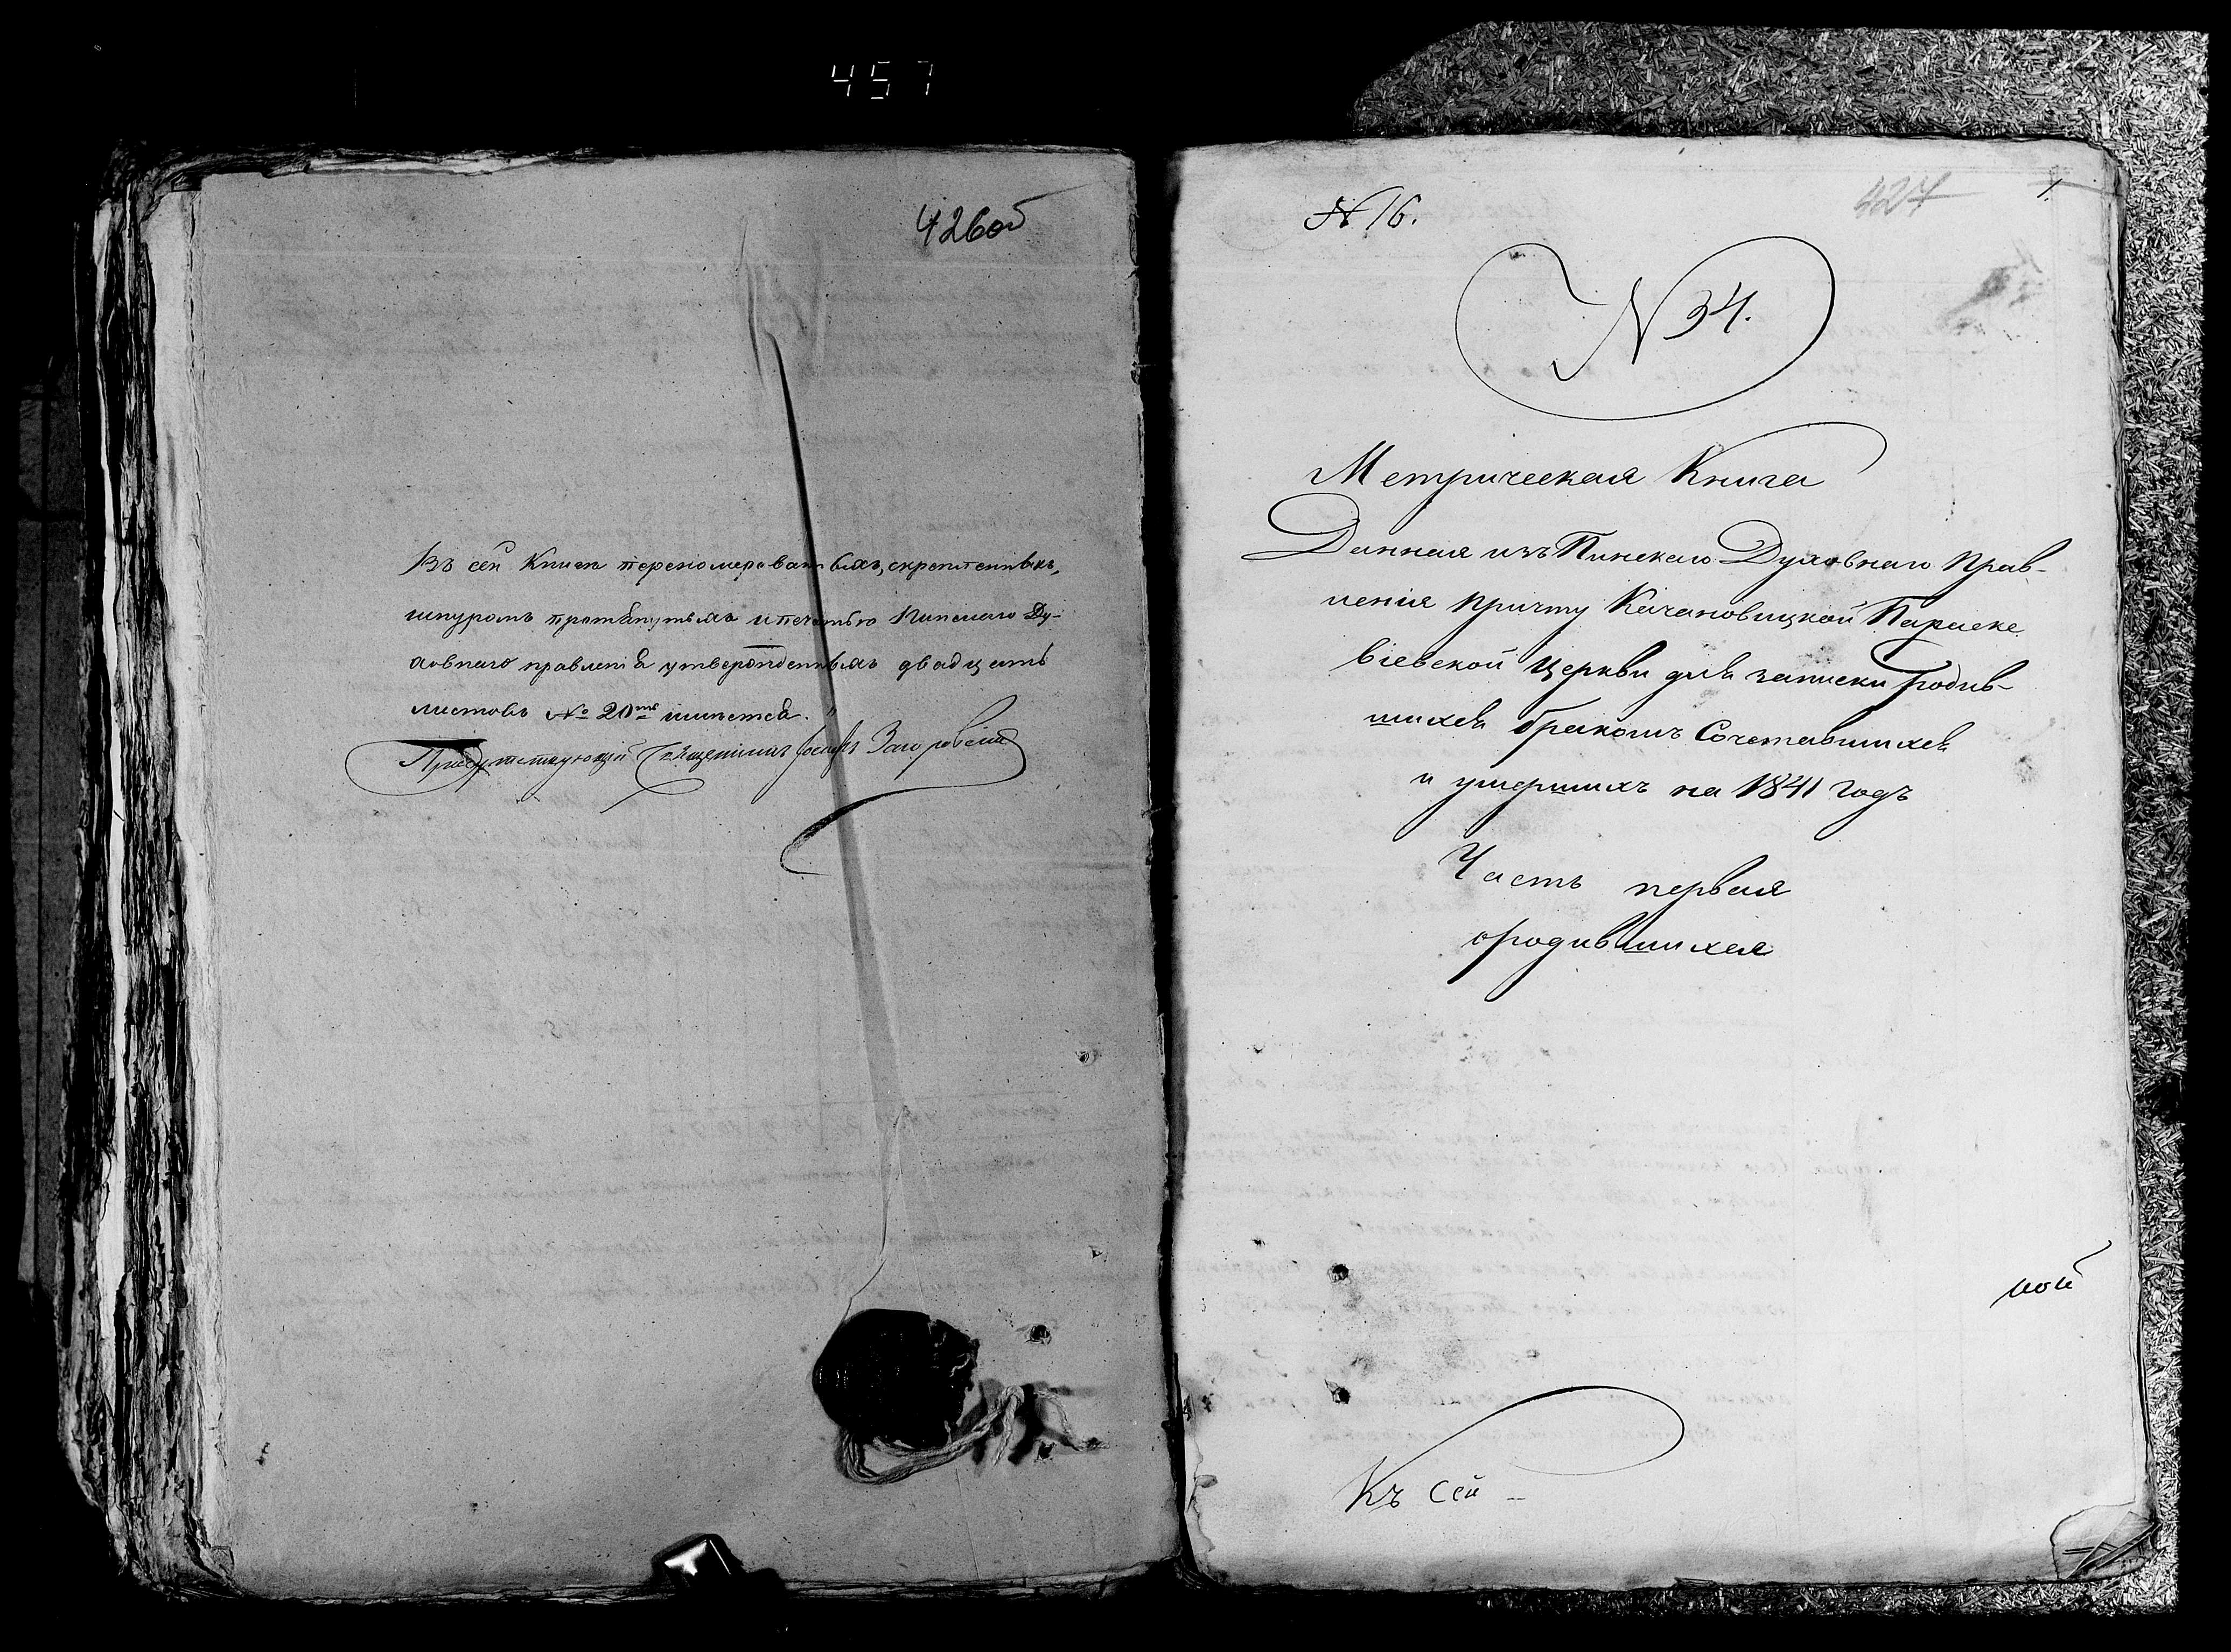 457
426об
Въ сей Книгѣ переномерованныхъ, скрепленныхъ,
шнуромъ протянутыхъ и печатью Пинскаго Ду-
ховнаго правленія утвержденныхъ двадцать
листовъ № 20ть имѣется.
Присутствующій Священникъ Іосифъ Загоровскій
№ 16.
427
1.
№ 34.
Метрическая Книга
Данная изъ Пинскаго Духовнаго Прав-
ленія Причту Качановицкой Параске
віевской Церкви для записки родив-
шихся бракомъ Сочетавшихся
и умершихъ на 1841 годъ
Часть первая
о родившихся
ной
Къ сей